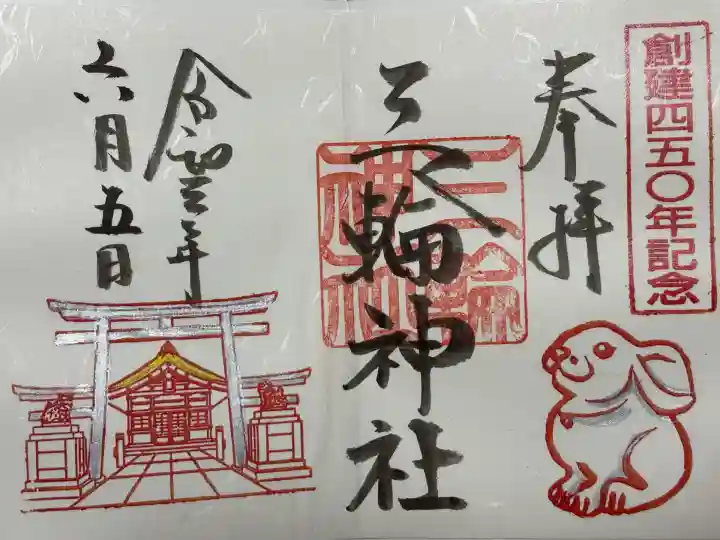 創建四五〇年記念
奉拝
三輪神社
三輪
神社
令和 年
六月五日